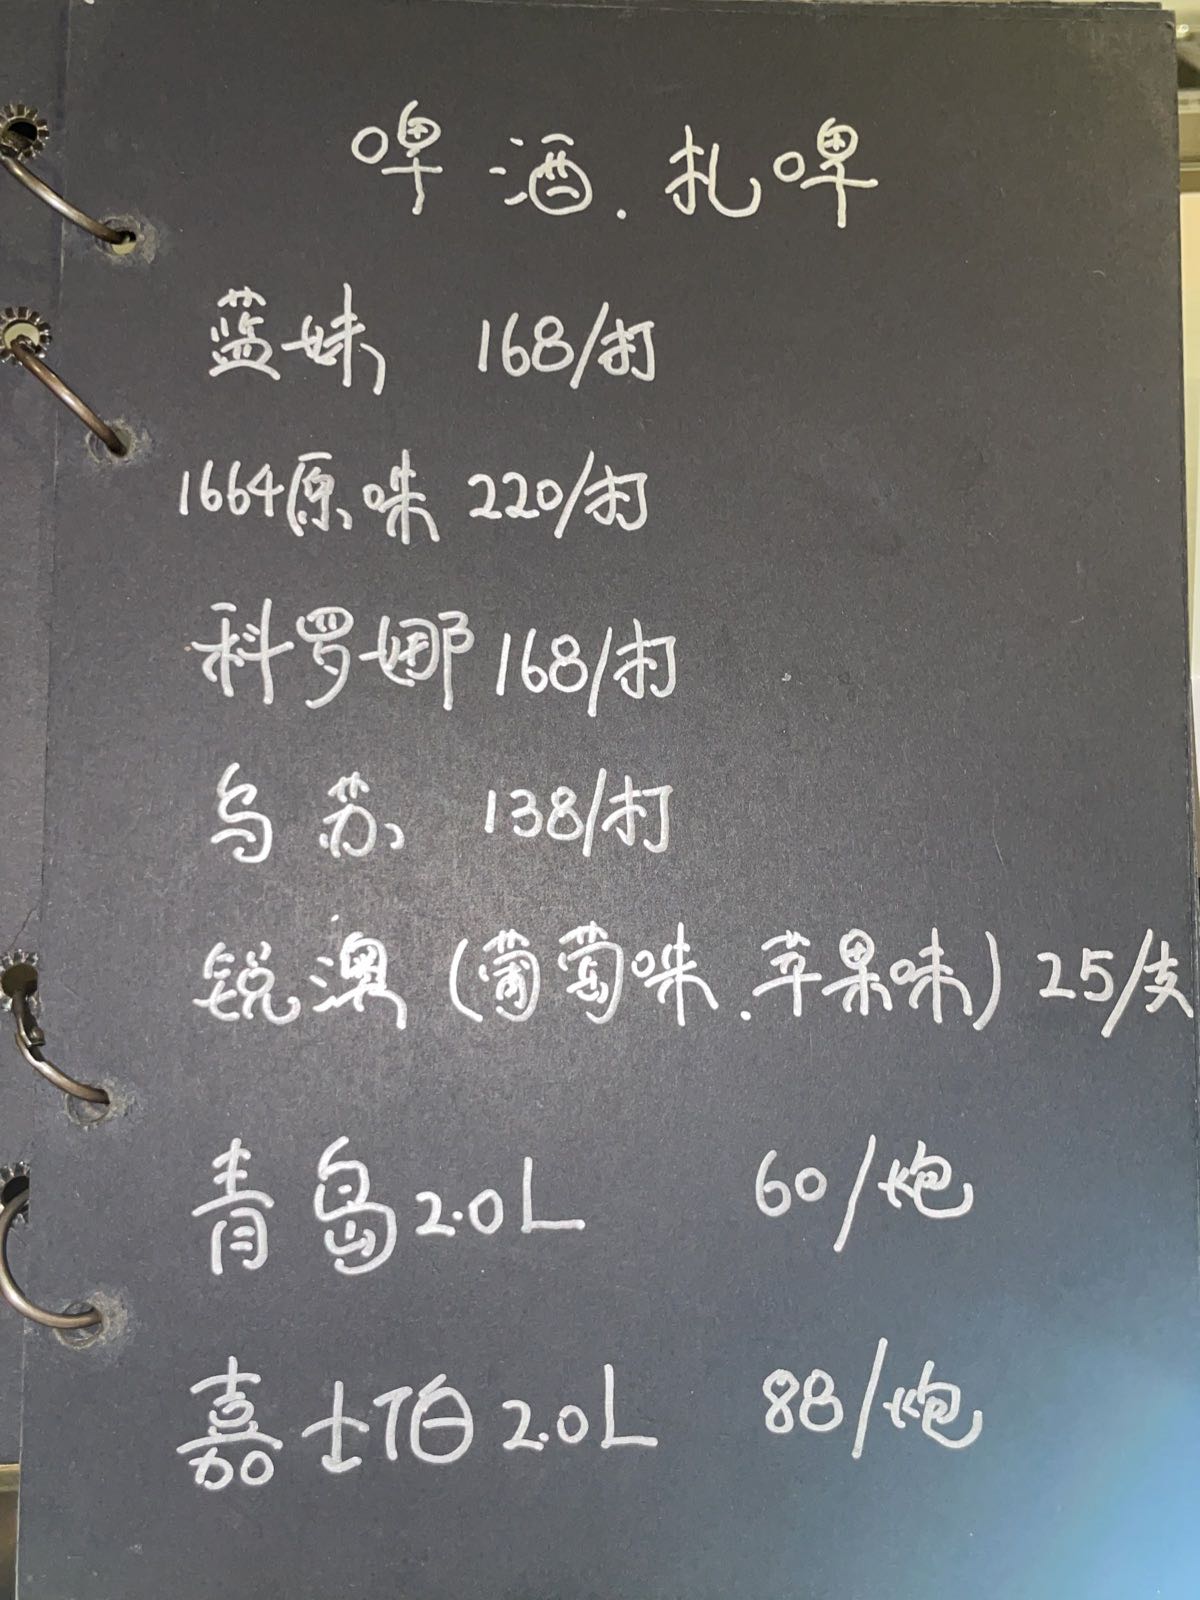 啤酒.扎啤
蓝妹 168/打
1664原味 220/打
科罗娜 168/打
乌苏 138/打
锐澳(葡萄味.苹果味) 25/支
青岛2.0L 60/炮
嘉士伯2.0L 88/炮